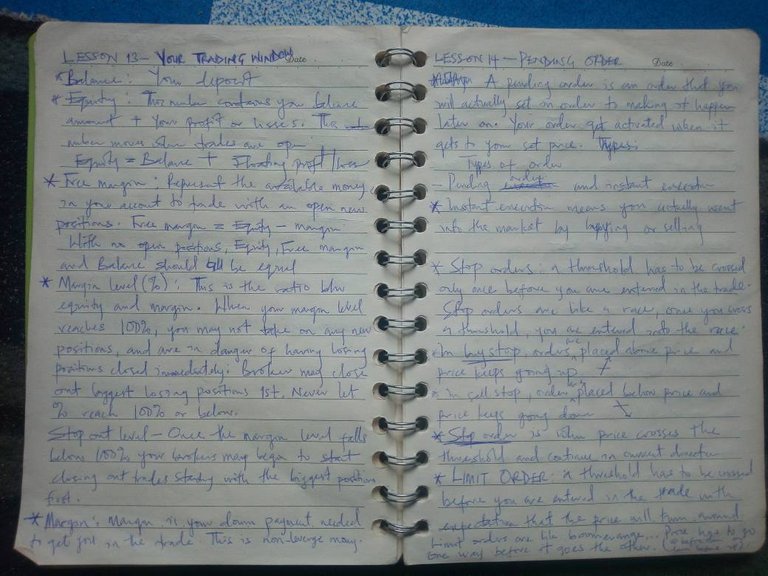 LESSON 13 - YOUR TRADING WINDOW Date
* Balance: Your deposit
* Equity: This number contains your balance
amount + your profit or losses. This
number moves when trades are open.
Equity = Balance + Floating profit/loss
* Free margin: Represent the available money
in your account to trade with an open new
positions. Free margin = Equity - margin
With no open positions, Equity, Free margin
and Balance should be equal
* Margin level (%): This is the ratio b/w
equity and margin. When your margin level
reaches 100%, you may not take on any new
positions, and are in danger of having losing
positions closed immediately. Broker may close
out biggest losing positions 1st. Never let
% reach 100% or below.
Stop out level - Once the margin level falls
below 100% your brokers may begin to start
closing out trades starting with the biggest position
first.
* Margin: Margin is your down payment needed
to get you in the trade. This is non-leverage money.
LESSON 14 - PENDING ORDER Date
A Pending order is an order that you
will actually set an order to making it happen
later on. Your order get activated when it
gets to your set price. Types:
Types of order
- Pending order and instant execution
* Instant execution means you actually went
into the market by buying or selling
* Stop orders: a threshold has to be crossed
only once before you are entered in the trade.
Stop orders are like a race, once you cross
a threshold, you are entered into the race.
In buy stop, orders are placed above price and
price keeps going up
* in sell stop, order are placed below price and
price keeps going down
* Stop order is when price crosses the
threshold and continue in current direction
* LIMIT ORDER: a threshold has to be crossed
before you are entered in the trade with
expectation that the price will turn around.
Limit orders are like boomerange... Price has to go
one way before it goes the other.